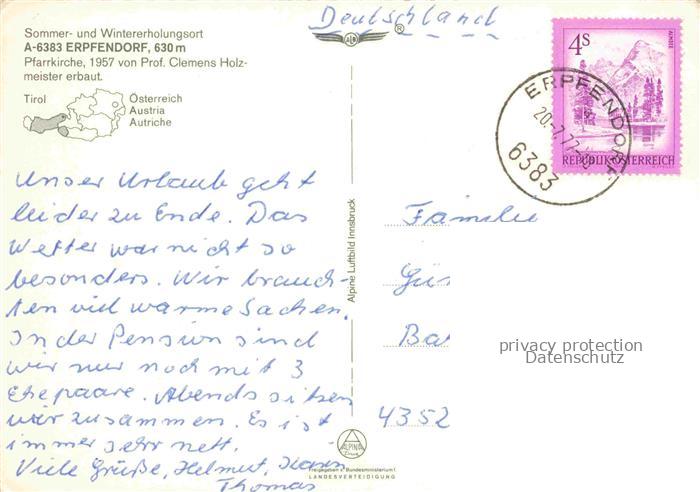 Deutschland
Sommer- und Wintererholungsort
A-6383 ERPFENDORF, 630 m
Pfarrkirche, 1957 von Prof. Clemens Holz-
meister erbaut.
Tirol
Österreich
Austria
Autriche
ALD ®
4 S
ALMSEE
REPUBLIK ÖSTERREICH
ERPFENDORF
20.-7.77-
6383
Unser Urlaub geht
leider zu Ende. Das
Wetter war nicht so
besonders. Wir brauch-
ten viel warme Sachen.
In der Pension sind
wir nur noch mit 3
Ehepaare. Abends sitzen
wir zusammen. Es ist
immer sehr nett.
Viele Grüße, Helmut, Karin
Thomas
Alpine Luftbild Innsbruck
Familie
Gü
Ba
4352
privacy protection
Datenschutz
ALPINE
Freigegeben v. Bundesministerium f.
LANDESVERTEIDIGUNG